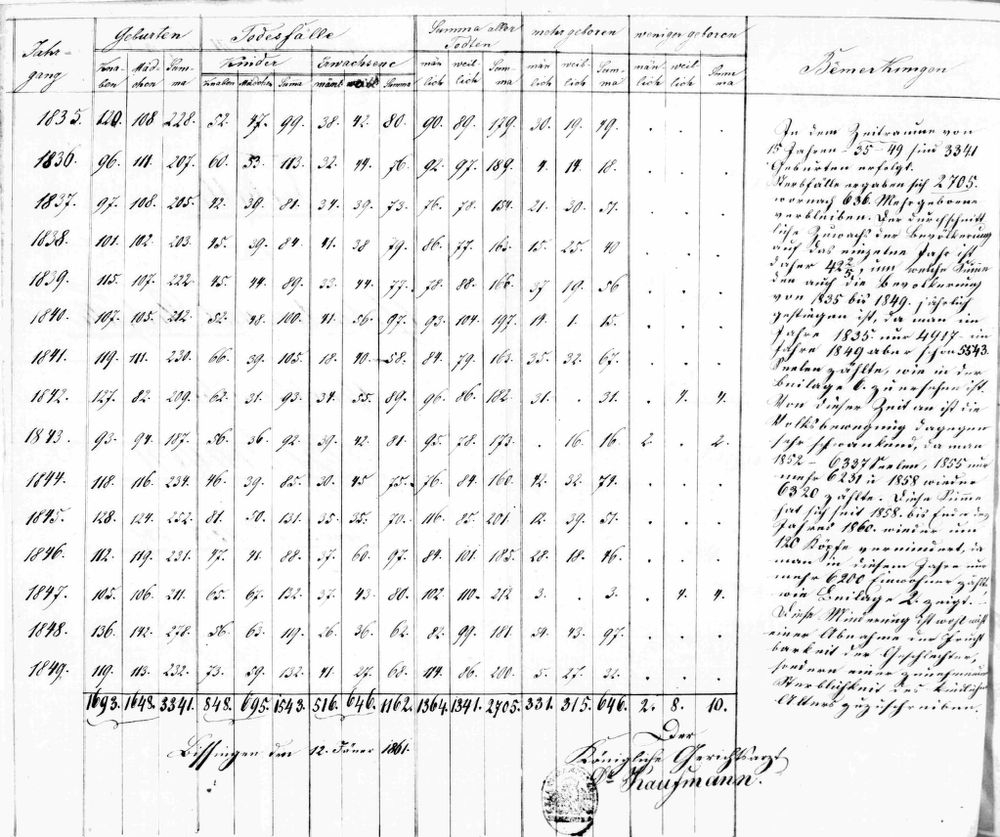 Jahrgang | Geburten | Todesfälle | Summa aller Todten | mehr geboren | weniger geboren | Bemerkungen
Kinder | Erwachsene
Knaben | Mädchen | Summa | Knaben | Mädchen | Summa | männl | weibl | Summa | männlich | weiblich | Summa | männlich | weiblich | Summa | männlich | weiblich | Summa
1835. 120. 108. 228. 52. 47. 99. 38. 42. 80. 90. 89. 179. 30. 19. 49. . . .
1836. 96. 111. 207. 60. 53. 113. 32. 44. 76. 92. 97. 189. 4. 14. 18. . . .
1837. 97. 108. 205. 42. 39. 81. 34. 39. 73. 76. 78. 154. 21. 30. 51. . . .
1838. 101. 102. 203. 45. 39. 84. 41. 38 79. 86. 77. 163. 15. 25. 40 . . .
1839. 115. 107. 222. 45. 44. 89. 33. 44. 77. 78. 88. 166. 37. 19. 56 . . .
1840. 107. 105. 212. 52. 48. 100. 41. 56. 97. 93. 104. 197. 14. 1. 15. . . .
1841. 119. 111. 230. 66. 39. 105. 18. 40. 58. 84. 79. 163. 35. 32. 67. . . .
1842. 127. 82. 209. 62. 31. 93. 34. 55. 89. 96. 86. 182. 31. . 31. . 4. 4.
1843. 93. 94. 187. 56. 36. 92. 39. 42. 81. 95. 78. 173. . 16. 16. 2. . 2.
1844. 118. 116. 234. 46. 39. 85. 30. 45. 75. 76. 84. 160. 42. 32. 74. . . .
1845. 128. 124. 252. 81. 50. 131. 35. 35. 70. 116. 85. 201. 12. 39. 51. . . .
1846. 112. 119. 231. 47. 41. 88. 37. 60. 97. 84. 101. 185. 28. 18. 46. . . .
1847. 105. 106. 211. 65. 67. 132. 37. 43. 80. 102. 110. 212 3. . 3. . 4. 4.
1848. 136. 142. 278. 56. 63. 119. 26. 36. 62. 82. 99. 181. 54. 43. 97. . . .
1849. 119. 113. 232. 73. 59. 132. 41. 27. 68. 114. 86. 200. 5. 27. 32. . . .
1693. 1648. 3341. 848. 695. 1543. 516. 646. 1162. 1364. 1341. 2705. 331. 315. 646. 2. 8. 10.
In dem Zeitraume von
15 Jahren 35–49 sind 3341
Geburten erfolgt.
Sterbfälle ergaben sich 2705.
wornach 636. Mehrgeborne
verbleiben. Der durchschnitt
liche Zuwachs der Bevölkerung
auf das einzelne Jahr ist
daher 42 2/5, um welche Summe
den auch die Bevölkerung
von 1835 bis 1849. jährlich
gestiegen ist, da man im
Jahre 1835. nur 4917 – im
Jahre 1849 aber schon 5543.
Seelen zählte, wie in der
Beilage 6. zu ersehen ist.
Von dieser Zeit an ist die
Volksbewegung dagegen
sehr schwankend, da man
1852 – 6337 Seelen, 1855 nur
mehr 6231 u 1858 wieder
6320 zählte. Diese Summe
hat sich seit 1858. bis Ende des
Jahres 1860. wieder um
120 Köpfe vermindert, da
man in diesem Jahre nur
mehr 6200 Einwohner zählt,
wie Beilage 2. zeigt.
Diese Minderung ist wohl nicht
einer Abnahme der Frucht
barkeit der Geschlechter,
sondern einer zunehmenden
Sterblichkeit des kindlichen
Alters zuzuschreiben.
Bissingen den 12. Jäner 1861.
Der
Königliche Gerichtsarzt
Dr. Kaufmann.